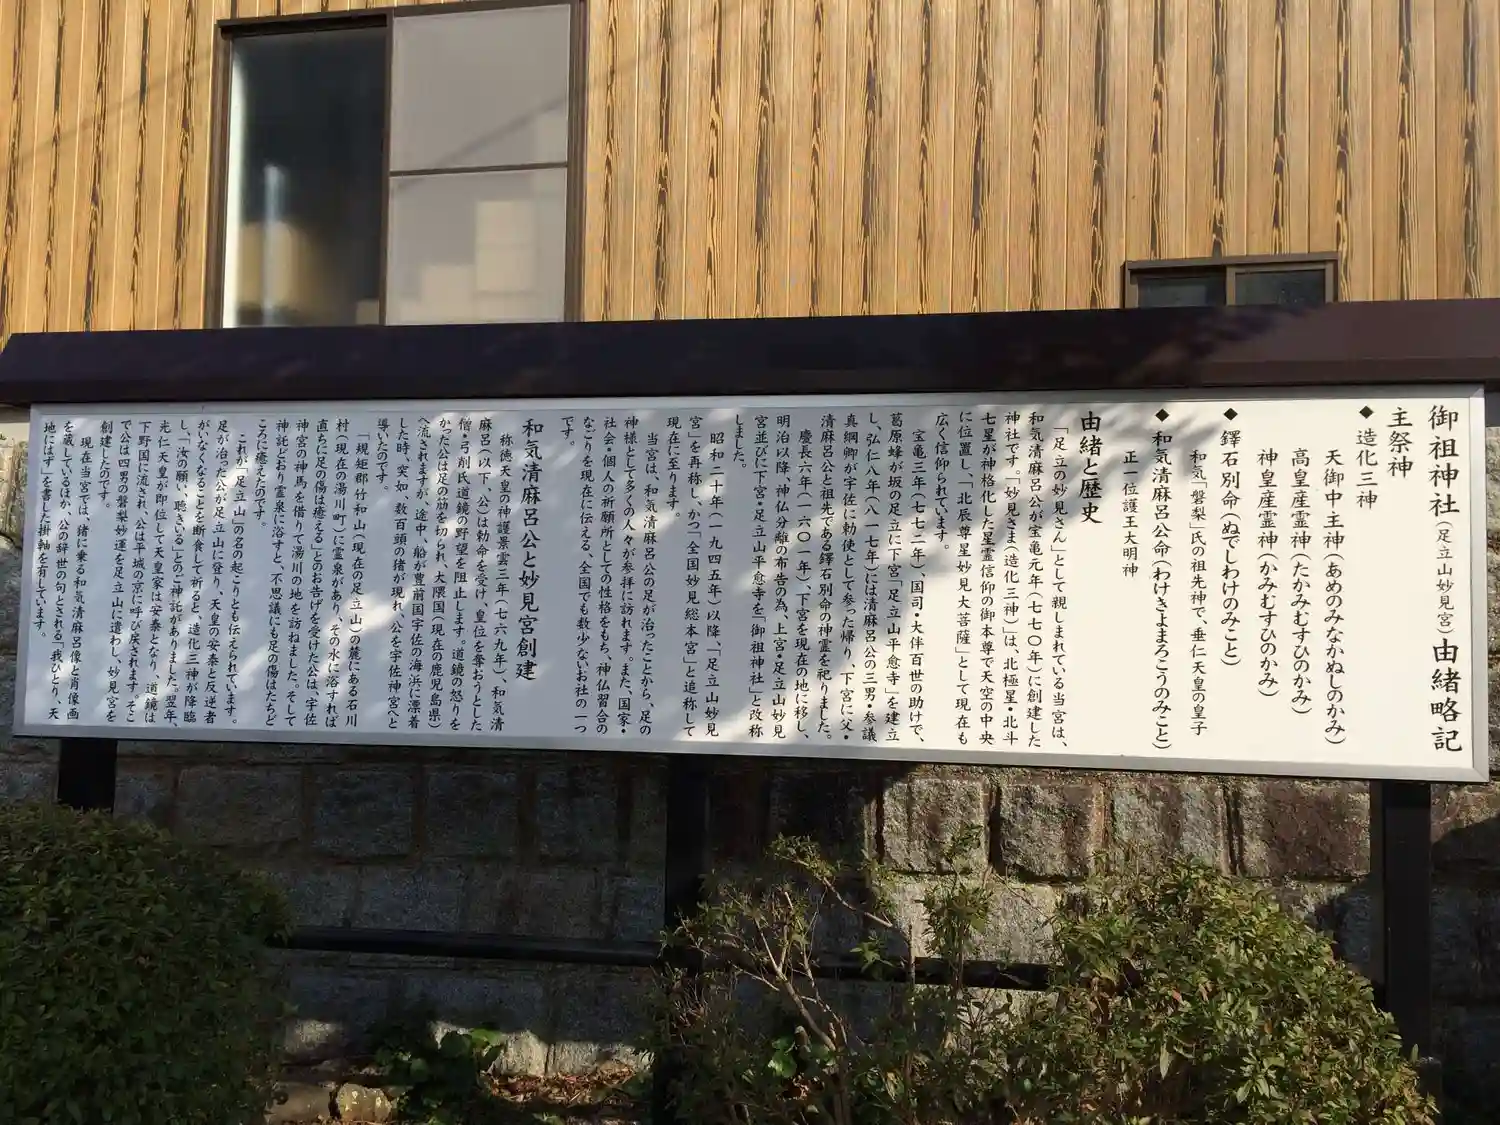 御祖神社(足立山妙見宮)由緒略記
主祭神
◆ 造化三神
天御中主神(あめのみなかぬしのかみ)
高皇産霊神(たかみむすひのかみ)
神皇産霊神(かみむすひのかみ)
◆ 鐸石別命(ぬでしわけのみこと)
和気「磐梨」氏の祖先神で、垂仁天皇の皇子
◆ 和気清麻呂公命(わけきよまろこうのみこと)
正一位護王大明神
由緒と歴史
「足立の妙見さん」として親しまれている当宮は、
和気清麻呂公が宝亀元年(七七〇年)に創建した
神社です。「妙見さま(造化三神)」は、北極星・北斗
七星が神格化した星霊信仰の御本尊で天空の中央
に位置し、「北辰尊星妙見大菩薩」として現在も
広く信仰られています。
宝亀三年(七七二年)、国司・大伴百世の助けで、
葛原蜂が坂の足立に下宮「足立山平愈寺」を建立
し、弘仁八年(八一七年)には清麻呂公の三男・参議
真綱卿が宇佐に勅使として参った帰り、下宮に父・
清麻呂公と祖先である鐸石別命の神霊を祀りました。
慶長六年(一六〇一年)、下宮を現在の地に移し、
明治以降、神仏分離の布告の為、上宮・足立山妙見
宮並びに下宮・足立山平愈寺を「御祖神社」と改称
しました。
昭和二十年(一九四五年)以降、「足立山妙見
宮」を再称し、かつ「全国妙見総本宮」と追称して
現在に至ります。
当宮は、和気清麻呂公の足が治ったことから、足の
神様として多くの人々が参拝に訪れます。また、国家・
社会・個人の祈願所としての性格をもち、神仏習合の
なごりを現在に伝える、全国でも数少ないお社の一つ
です。
和気清麻呂公と妙見宮創建
称徳天皇の神護景雲三年(七六九年)、和気清
麻呂(以下、公)は勅命を受け、皇位を奪おうとした
僧・弓削氏道鏡の野望を阻止します。道鏡の怒りを
かった公は足の筋を切られ、大隈国(現在の鹿児島県)
へ流されますが、途中、船が豊前国宇佐の海浜に漂着
した時、突如、数百頭の猪が現れ、公を宇佐神宮へと
導いたのです。
「規矩郡竹和山(現在の足立山)の麓にある石川
村(現在の湯川町)に霊泉があり、その水に浴すれば
直ちに足の傷は癒える」とのお告げを受けた公は、宇佐
神宮の神馬を借りて湯川の地を訪ねました。そして
神託どおり霊泉に浴すと、不思議にも足の傷はたちど
ころに癒えたのです。
これが「足立山」の名の起こりとも伝えられています。
足が治った公が足立山に登り、天皇の安泰と反逆者
がいなくなることを断食して祈ると、造化三神が降臨
し、「汝の願い、聴きいる」とのご神託がありました。翌年、
光仁天皇が即位して天皇家は安泰となり、道鏡は
下野国に流され、公は平城の京に呼び戻されます。そこ
で公は四男の磐梨妙運を足立山に遣わし、妙見宮を
創建したのです。
現在当宮では、猪に乗る和気清麻呂像と肖像画
を蔵しているほか、公の辞世の句とされる「我ひとり、天
地にはず」を書した掛軸を有しています。